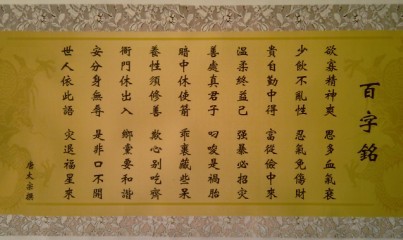 百字銘
欲寡精神爽 思多血氣衰
少飲不亂性 忍氣免傷財
貴自勤中得 富從儉中來
溫柔終益己 強暴必招灾
善處真君子 叼唆是禍胎
暗中休使箭 乖裏藏些呆
養性須修善 欺心別吃齊
衙門休出入 鄉重要和諧
安分身無辱 是非口不開
世人依此語 灾退福星來
唐太宗撰